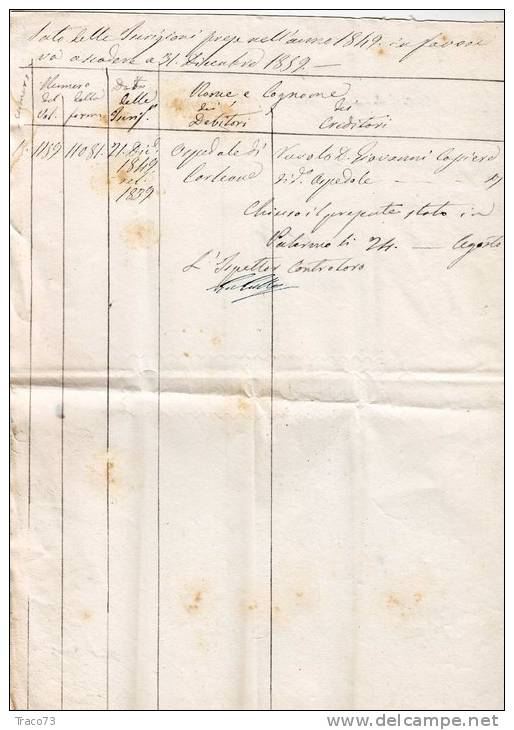 Stato delle Iscrizioni prese nell'anno 1849. in favore
va a scadere a 31. Dicembre 1859 —
Numero
del delle
Vol. forme
Data
delle
Iscriz.
Nome e Cognome
dei dei
Debitori Creditori
1159 11081. 21. Dic.
1849
1859
Ospedale di
Corleone
D. Giovanni Cassiere
di d. Ospedale —
Chiuso il presente stato in
Palermo li 24. — Agosto
L'Ispettor Controloro
Traco73
http://www.delcampe.net